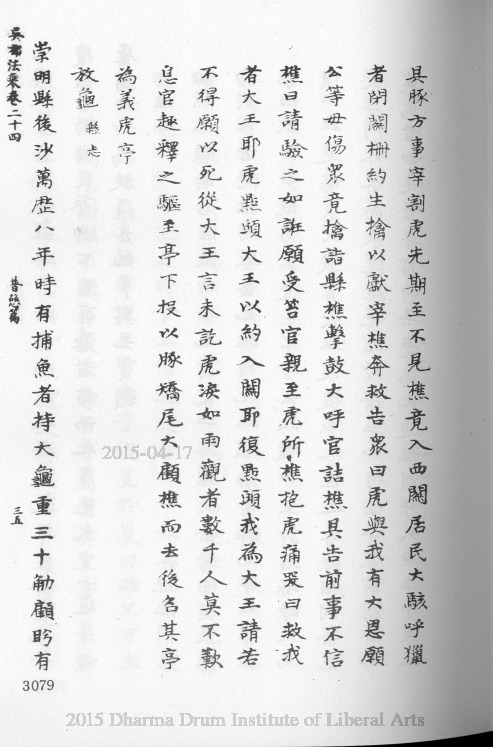 具豚方事宰割虎先期至不見樵竟入西關居民大駭呼獵
者閉關柵約生擒以獻宰樵奔救告衆曰虎與我有大恩願
公等毋傷衆竟擒詣縣樵擊鼓大呼官詰樵具告前事不信
樵曰請驗之如誑願受笞官親至虎所樵抱虎痛哭曰救我
者大王耶虎點頭大王以約入關耶復點頭我為大王請若
不得願以死從大王言未訖虎淚如雨觀者數千人莫不歎
息官趣釋之驅至亭下投以豚矯尾大顧樵而去後名其亭
為義虎亭
放龜 縣志
崇明縣後沙萬歷八年時有捕魚者持大龜重三十觔顧盼有
吳都法乘卷二十四
昔慈篇
三五
3079
2015-04-17
2015 Dharma Drum Institute of Liberal Arts